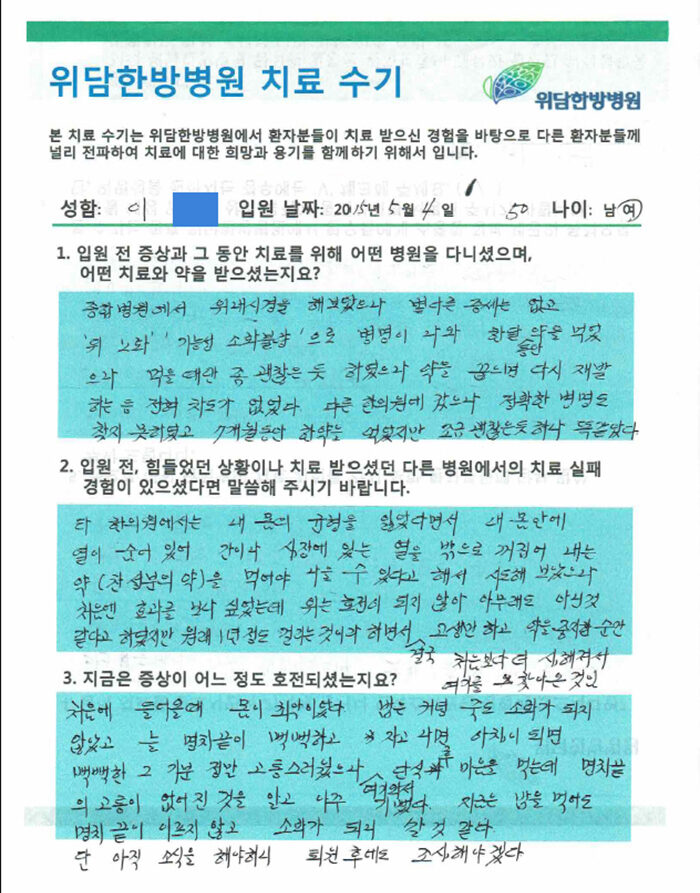 위담한방병원 치료 수기
위담한방병원
본 치료 수기는 위담한방병원에서 환자분들이 치료 받으신 경험을 바탕으로 다른 환자분들께
널리 전파하여 치료에 대한 희망과 용기를 함께하기 위해서 입니다.
성함: 이 입원 날짜: 2015년 5월 4일 50 나이: 남 여
1. 입원 전 증상과 그 동안 치료를 위해 어떤 병원을 다니셨으며,
어떤 치료와 약을 받으셨는지요?
종합병원에서 위내시경을 해보았으나 별다른 증세는 없고
'위 노화' '기능성 소화불량'으로 병명이 나와 한달동안 약을 먹었
으나 먹을때만 좀 괜찮은 듯 하였으나 약을 끊으면 다시 재발
하는 등 전혀 차도가 없었다. 다른 한의원에 갔으나 정확한 병명도
찾지 못하였고 7개월동안 한약을 먹었지만 조금 괜찮은듯하나 똑같았다.
2. 입원 전, 힘들었던 상황이나 치료 받으셨던 다른 병원에서의 치료 실패
경험이 있으셨다면 말씀해 주시기 바랍니다.
타 한의원에서는 내 몸의 균형을 잃었다면서 내 몸안에
열이 숨어 있어 간이나 심장에 있는 열을 밖으로 끄집어 내는
약(찬 성분의 약)을 먹어야 나을 수 있다고 해서 시도해 보았으나
처음엔 효과를 보나 싶었는데 위는 호전이 되지 않아 아무래도 아닌것
같다고 하였지만 원래 1년정도 걸리는 것이라 하면서 결국 고생만 하고 약을 중지한 순간
처음보다 더 심해져서
여기를 찾아온 것임
3. 지금은 증상이 어느 정도 호전되셨는지요?
처음에 들어올때 몸이 최악이었다. 밥은 커녕 죽도 소화가 되지
않았고 늘 명치끝이 빽빽하고 자고 나면 아침이 되면
빽빽한 그 기분 정말 고통스러웠으나 여기와서 단식후 미음을 먹는데 명치끝
의 고통이 없어진 것을 알고 아주 기뻤다. 지금은 밥을 먹어도
명치 끝이 아프지 않고 소화가 되니 살 것 같다.
단 아직 소식을 해야하니 퇴원 후에도 조심해야겠다